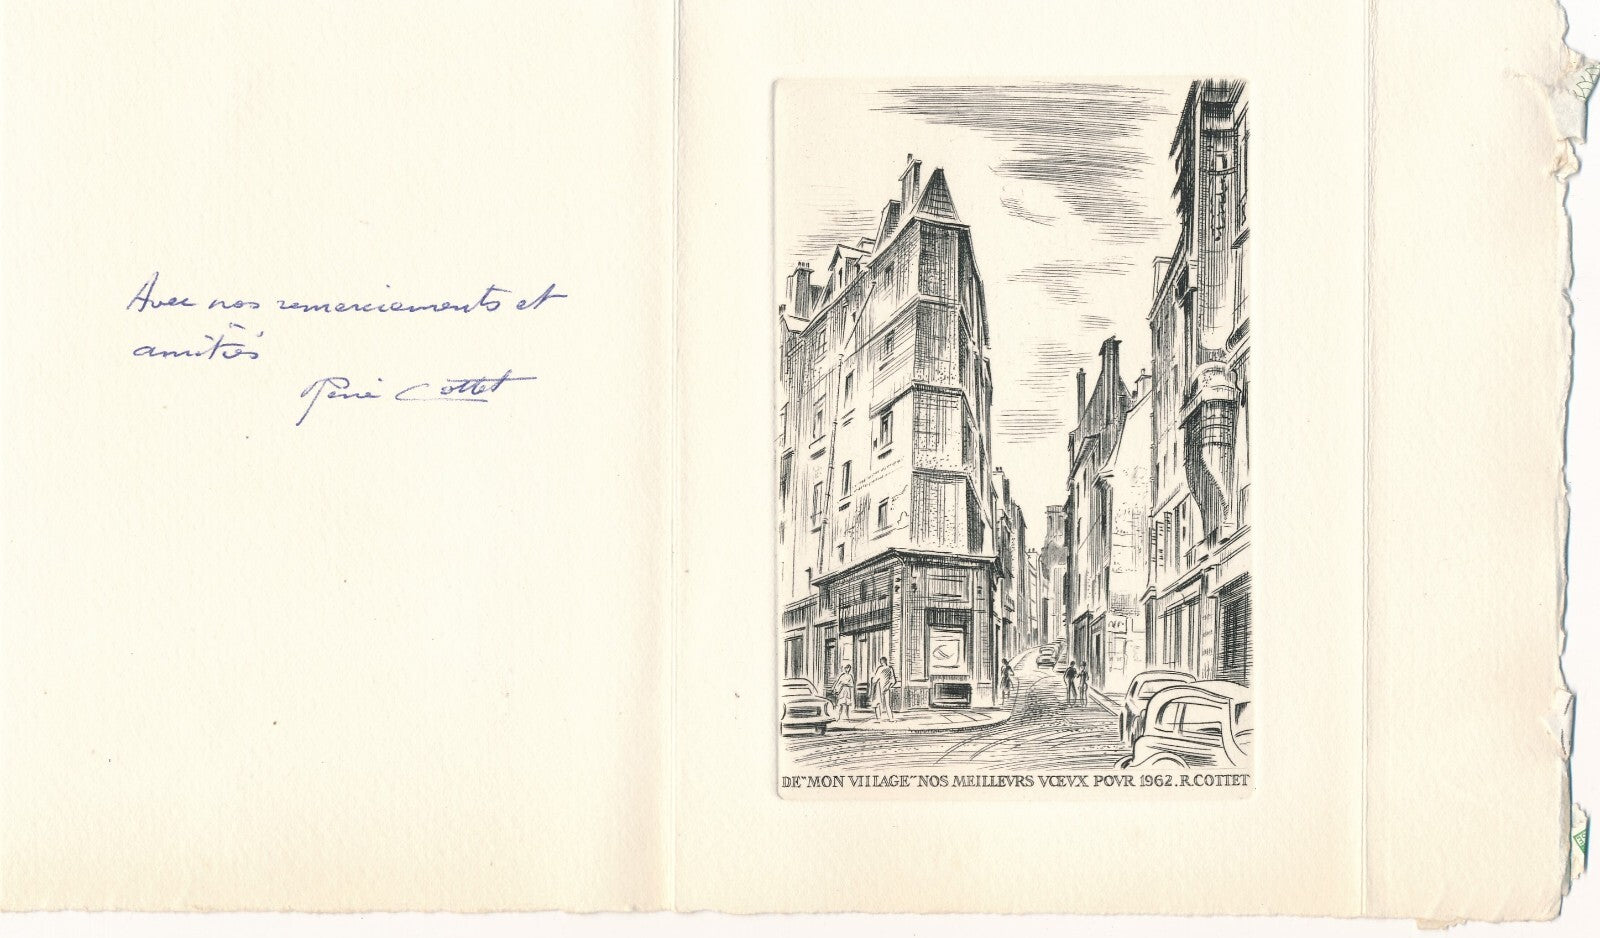 Avec nos remerciements et
amitiés
René Cottet
DE "MON VILLAGE" NOS MEILLEVRS VŒVX POVR 1962. R. COTTET